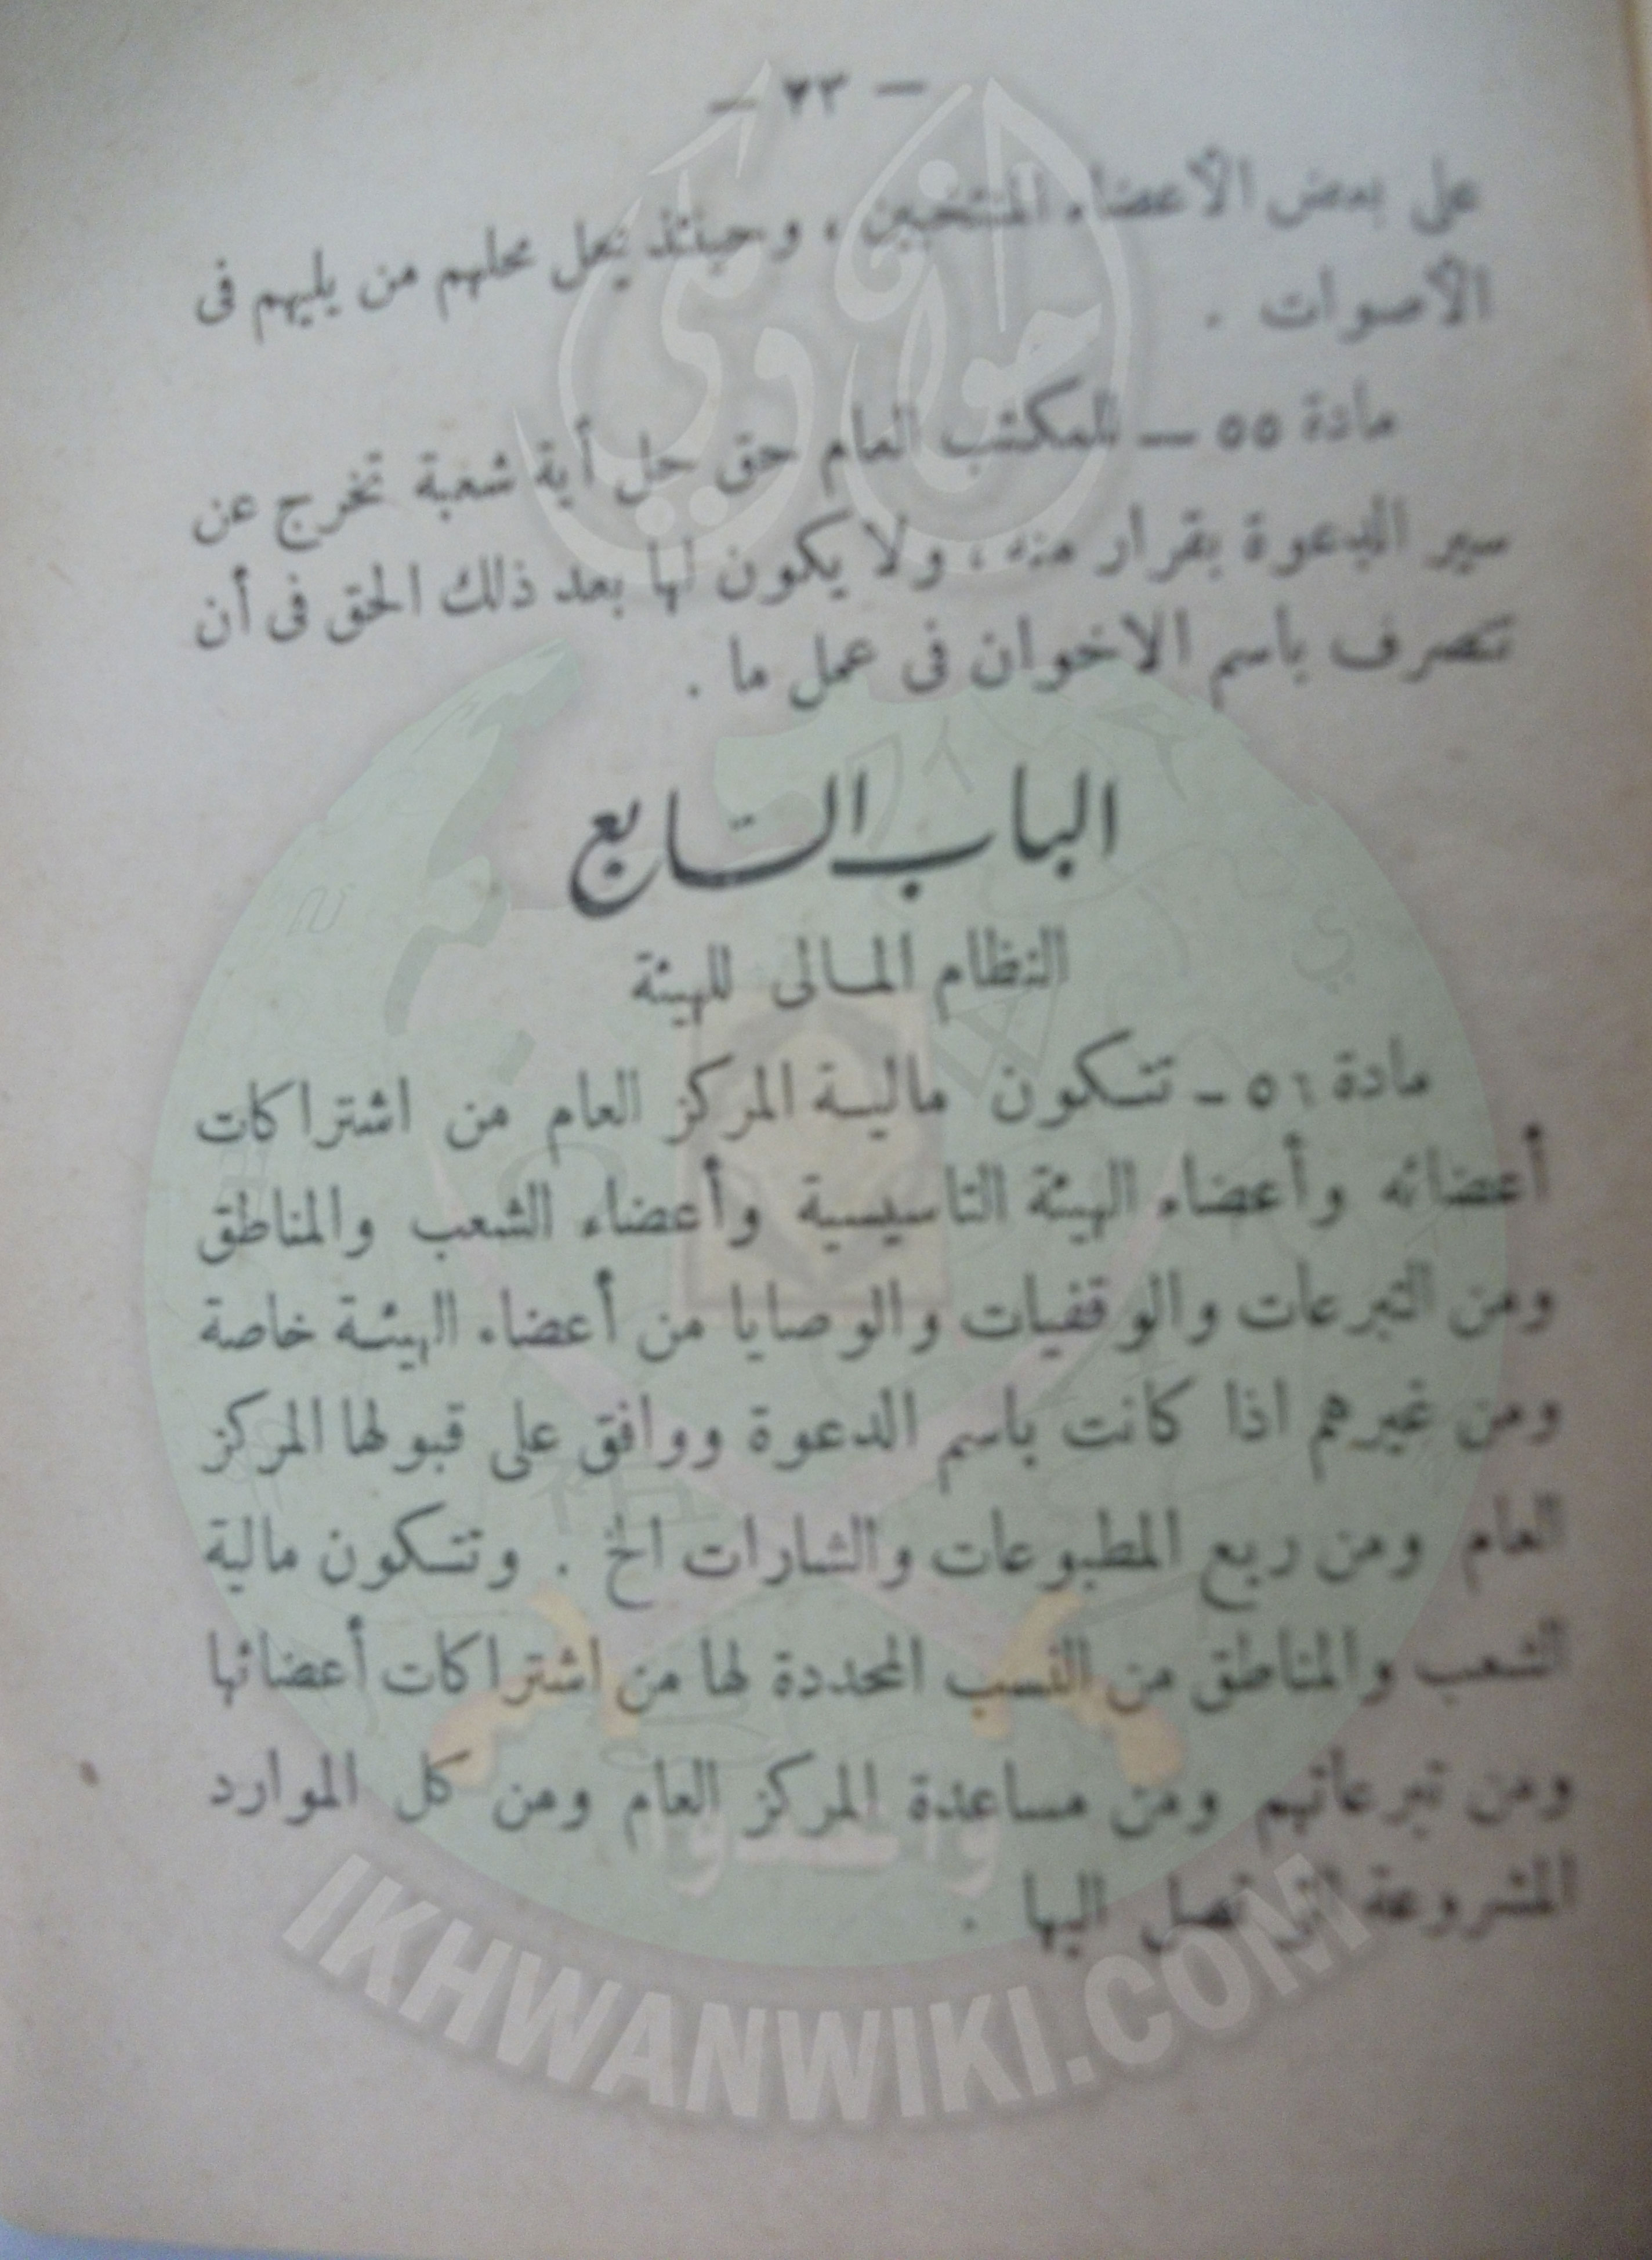 — ٢٣ —
على بعض الأعضاء المنتخبين ، وحينئذ يحل محلهم من يليهم فى
الأصوات .
مادة ٥٥ — للمكتب العام حق حل أية شعبة تخرج عن
سير الدعوة بقرار منه ، ولا يكون لها بعد ذلك الحق فى أن
تتصرف باسم الاخوان فى عمل ما .
الباب السابع
النظام المالى للهيئة
مادة ٥٦ - تتكون مالية المركز العام من اشتراكات
أعضائه وأعضاء الهيئة التاسيسية وأعضاء الشعب والمناطق
ومن التبرعات والوقفيات والوصايا من أعضاء الهيئة خاصة
ومن غيرهم اذا كانت باسم الدعوة ووافق على قبولها المركز
العام ومن ريع المطبوعات والشارات الخ . وتتكون مالية
الشعب والمناطق من النسب المحددة لها من اشتراكات أعضائها
ومن تبرعاتهم ومن مساعدة المركز العام ومن كل الموارد
المشروعة التى تصل اليها .
إخوان ويكي
وأعدوا
IKHWANWIKI.COM